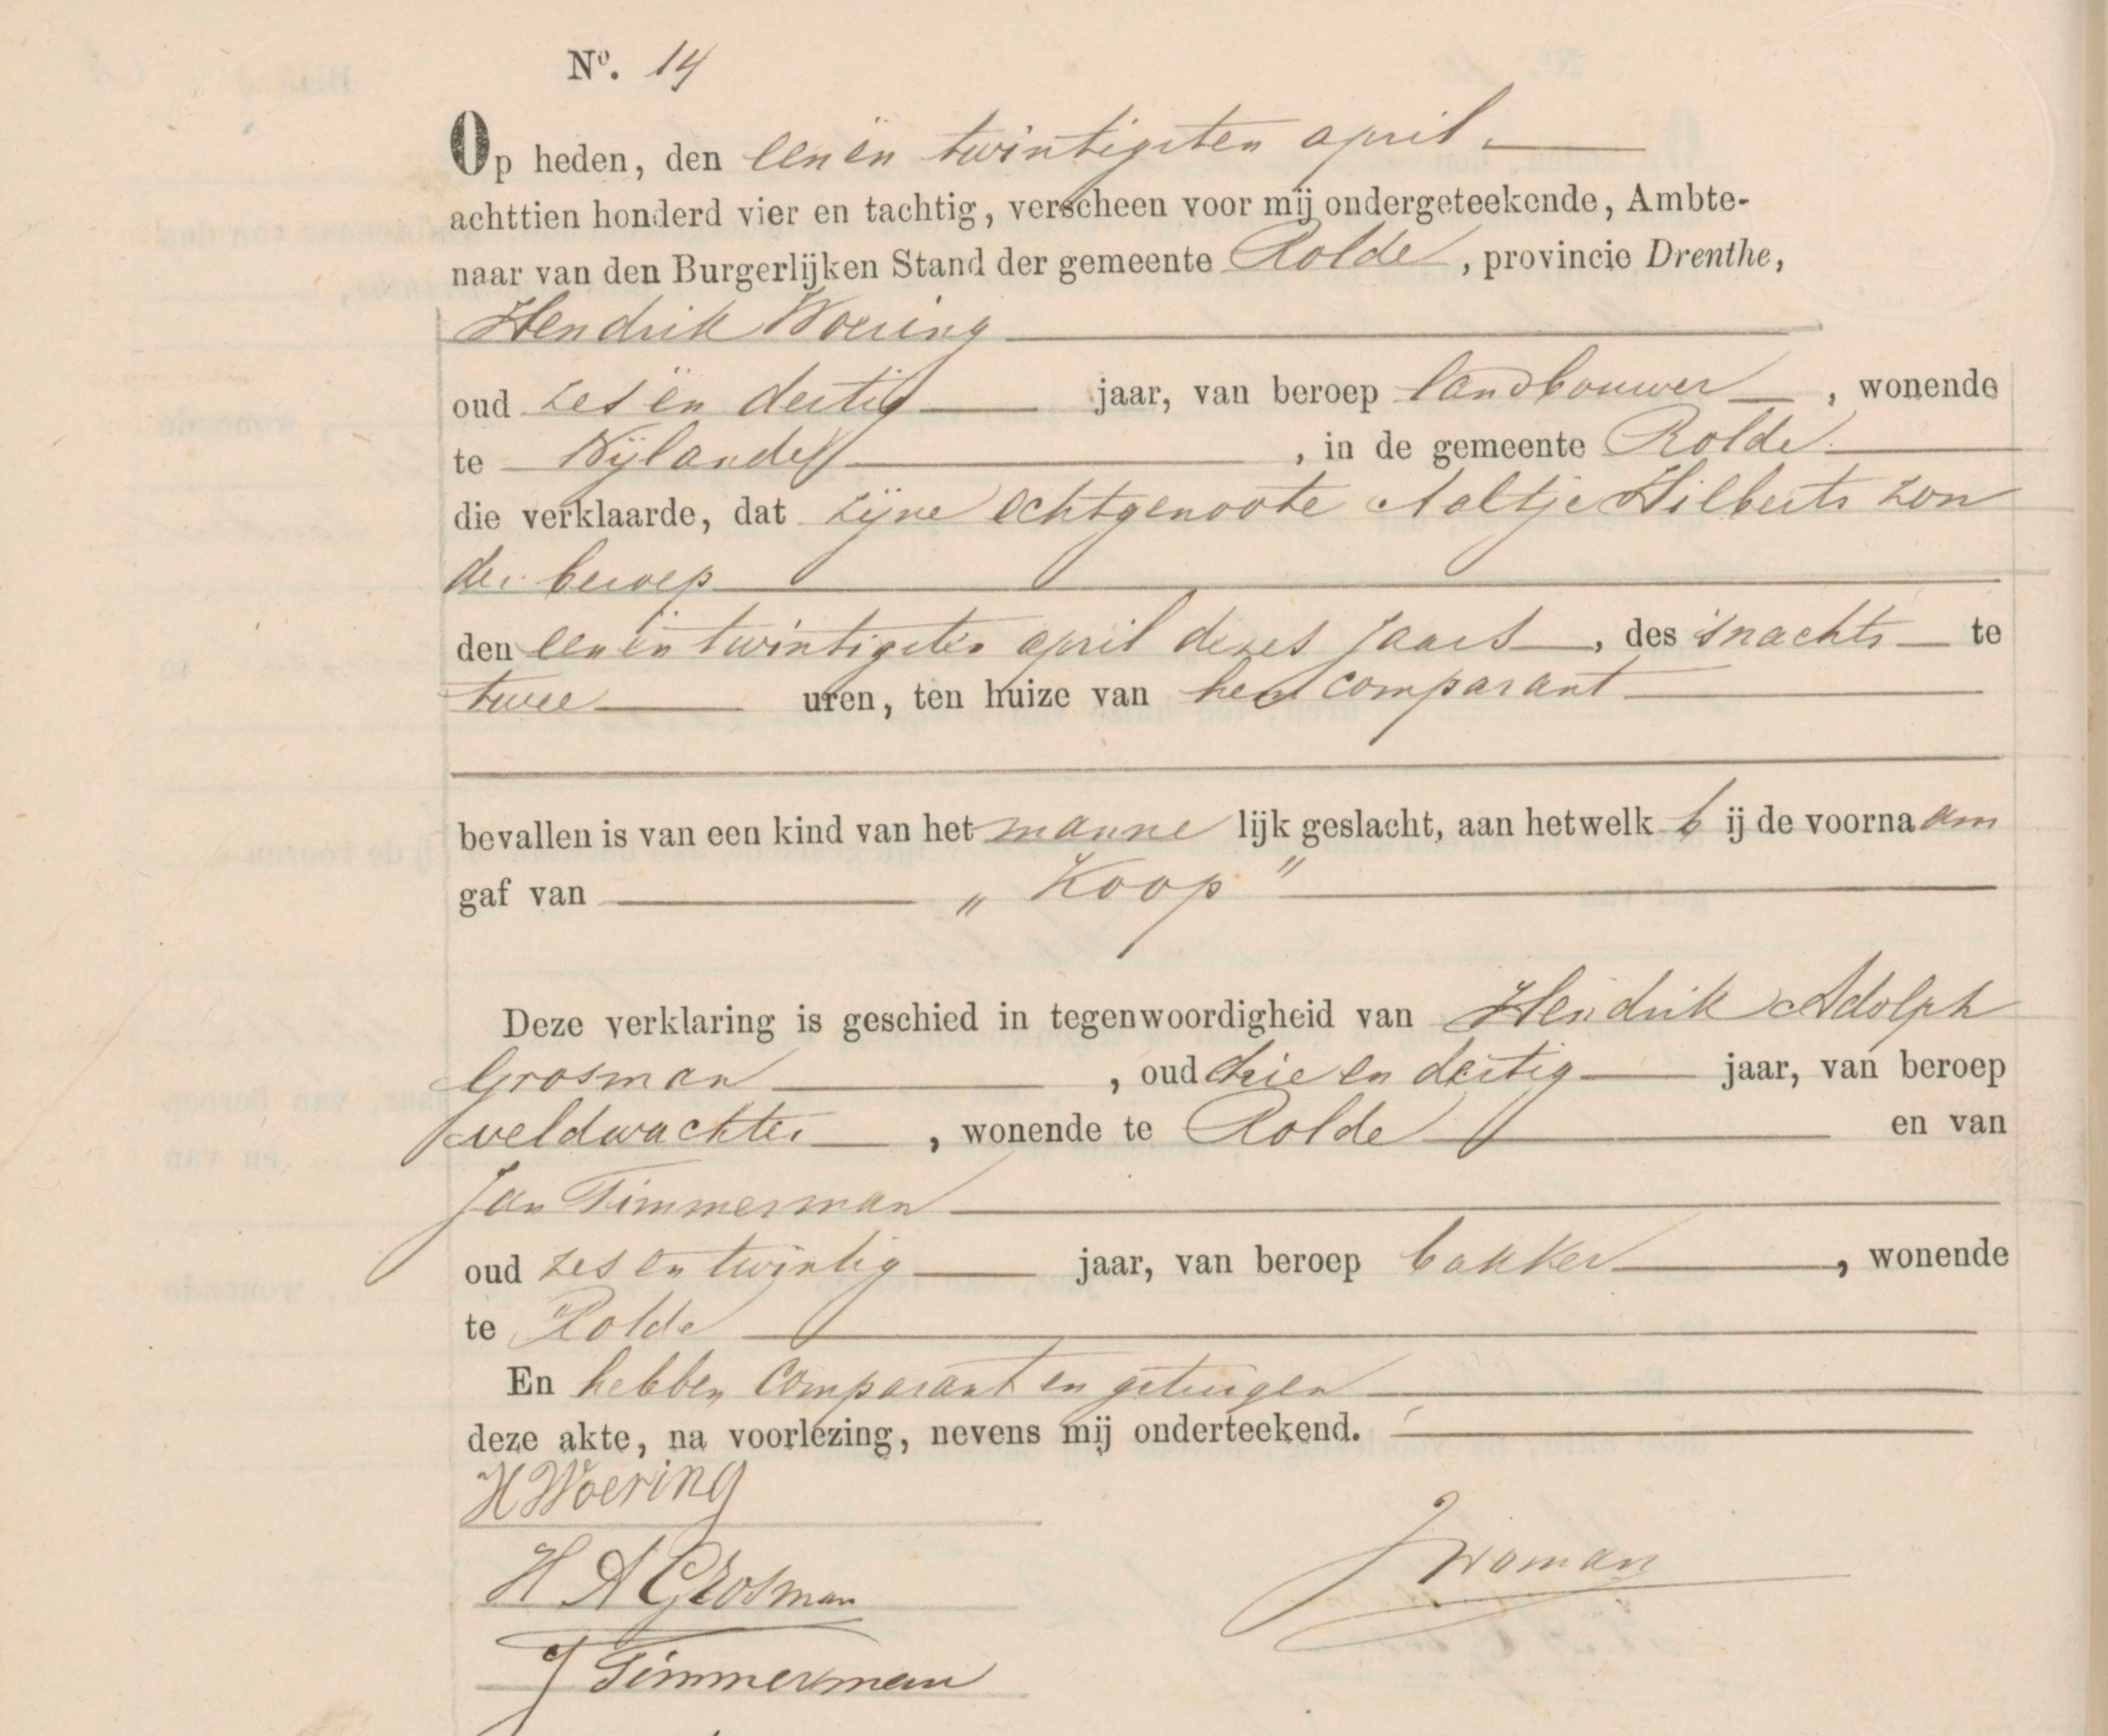 No. 14
Op heden, den eenën twintigsten april
achttien honderd vier en tachtig, verscheen voor mij ondergeteekende, Ambte-
naar van den Burgerlijken Stand der gemeente Rolde, provincie Drenthe,
Hendrik Woering
oud zesën dertig jaar, van beroep landbouwer, wonende
te Nijlande, in de gemeente Rolde
die verklaarde, dat zijne echtgenoote Aaltje Hilberts zon
der beroep
den eenën twintigsten april dezes jaars, des 'snachts te
twee uren, ten huize van comparant
bevallen is van een kind van het manne lijk geslacht, aan hetwelk h ij de voorna am
gaf van „Koop"
Deze verklaring is geschied in tegenwoordigheid van Hendrik Adolph
Grosman, oud drie en dertig jaar, van beroep
veldwachter, wonende te Rolde en van
Jan Timmerman
oud zes en twintig jaar, van beroep bakker, wonende
te Rolde
En hebben comparant en getuigen
deze akte, na voorlezing, nevens mij onderteekend.
H Woering
H A Grosman
J Timmerman